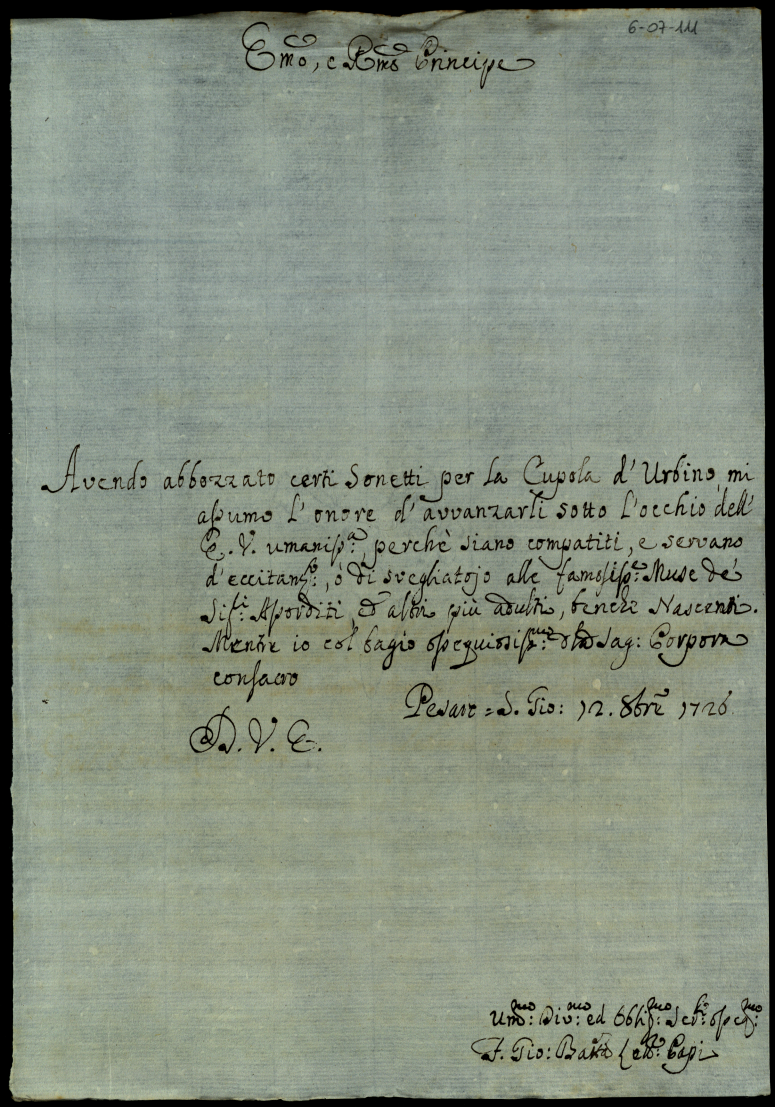 6-07-111
Emo, e Rmo Principe
Avendo abbozzato certi Sonetti per la Cupola d'Urbino, mi
assumo l'onore d'avvanzarli sotto l'occhio dell'
E. V. umaniss:ma, perchè siano compatiti, e servano
d'eccitam:to, ò di svegliatojo alle famosiss:e Muse de'
Sig:ri Assorditi, ed altri più adulti, benche Nascenti.
Mentre io col bagio ossequiosiss:mo della Sag: Porpora
consacro
Pesaro = S. Gio: 12. 8bre 1726
D. V. E.
Um:mo Div:mo ed Obblig:mo Ser:re osseq:mo
F. Gio: Batta Papi